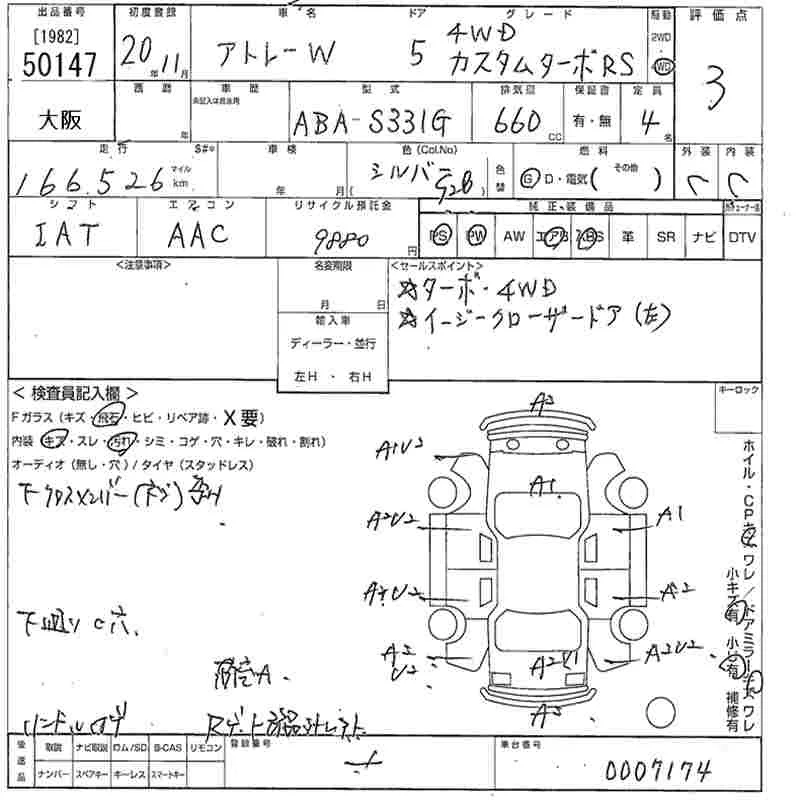 出品番号 初度登録 車名 ドア グレード 駆動 評価点
[1982] 50147 20年11月 アトレーW 5 4WD カスタムターボRS 2WD 4WD 3
大阪 西暦 年 車歴 未記入は自家用 型式 ABA-S331G 排気量 660 CC 保証書 有・無 定員 4名
走行 $#* 車検 色(Col.No) 燃料 外装 内装
166,526 マイル km 年 月 シルバー ( S28 ) 色替 G D・電気( その他 ) C C
シフト エアコン リサイクル預託金 純正装備品
IAT AAC 9880円 PS PW AW エアB ABS 革 SR ナビ DTV
<注意事項> 名変期限 月 日 <セールスポイント>
☆ターボ・4WD
☆イージークローザードア(左)
輸入車
ディーラー・並行
左H ・ 右H
<検査員記入欄> キーロック
Fガラス(キズ・飛石・ヒビ・リペア跡・X要)
内装(キズ・スレ・汚れ・シミ・コゲ・穴・キレ・破れ・割れ)
オーディオ(無し・穴)/タイヤ(スタッドレス)
A2
A1U2
A1
A2U2 A1
A2
下廻りC穴
A2 U2 A2U1 A2U2
A2
ホイル・CPキズ ワレ/ドアミラーキズ ワレ
小キズ有 小凹有 補修有
後送品 取説 ナビ取説 ロム/SD B-CAS リモコン 登録番号 車台番号
ナンバー スペアキー キーレス スマートキー 0007174